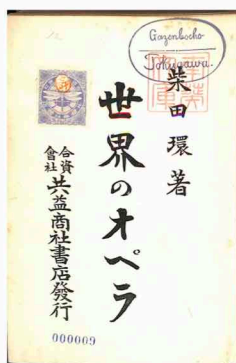 Gazenbocho
Tokugawa.
柴田環著
世界のオペラ
合資
會社
共益商社書店發行
000009